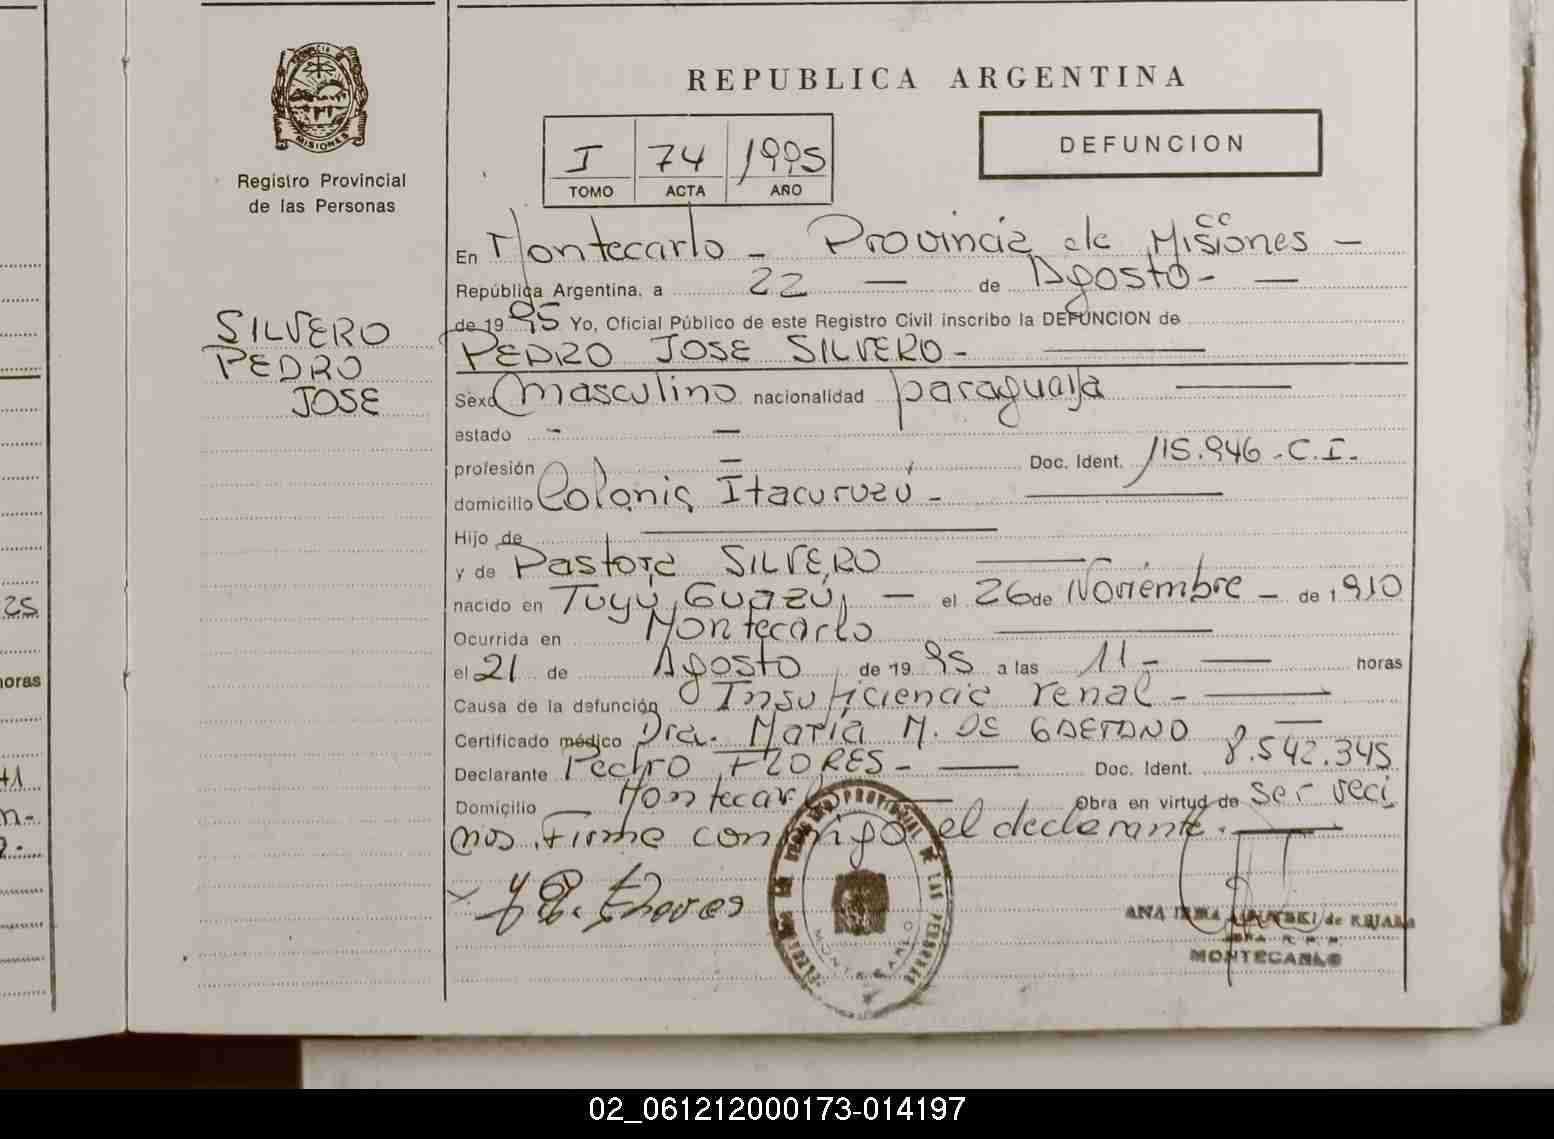 REPUBLICA ARGENTINA
MISIONES
Registro Provincial
de las Personas
DEFUNCION
I 74 1995
TOMO ACTA AÑO
En Montecarlo - Provincia de Misiones -
República Argentina, a 22 — de Agosto - —
de 1995 Yo, Oficial Público de este Registro Civil inscribo la DEFUNCION de
SILVERO
PEDRO
JOSE
PEDRO JOSE SILVERO -
Sexo masculino nacionalidad paraguaya
estado - —
profesión — Doc. Ident. 115.946.C.I.
domicilio Colonia Itacuruzú -
Hijo de
y de Pastora SILVERO
nacido en Tuyú Guazú, — el 26 de Noviembre - de 1910
Ocurrida en Montecarlo
el 21 de Agosto de 1995 a las 11 - — horas
Causa de la defunción Insuficiencia renal -
Certificado médico Dra. María M. DE GAETANO —
Declarante Pedro FLORES - — Doc. Ident. 8.542.345
Domicilio — Montecarlo — Obra en virtud de ser veci
nos. Firma conmigo el declarante.
ANA IRMA de
MONTECARLO
MONTECARLO
25
horas
02_061212000173-014197